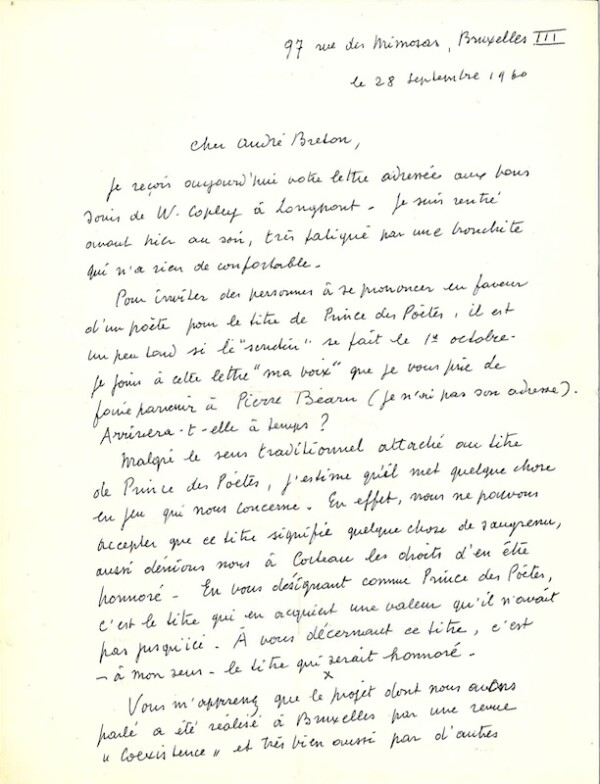 97 rue des Mimosas, Bruxelles III
le 28 septembre 1960
Cher André Breton,
Je reçois aujourd'hui votre lettre adressée aux bons
soins de W. Copley à Longpont - Je suis rentré
avant hier au soir, très fatigué par une bronchite
qui n'a rien de confortable -
Pour inviter des personnes à se prononcer en faveur
d'un poète pour le titre de Prince des Poètes, il est
un peu tard si le "scrutin" se fait le 1er octobre -
Je joins à cette lettre "ma voix" que je vous prie de
faire parvenir à Pierre Béarn (je n'ai pas son adresse).
Arrivera-t-elle à temps ?
Malgré le sens traditionnel attaché au titre
de Prince des Poètes, j'estime qu'il met quelque chose
en jeu qui nous concerne - En effet, nous ne pouvons
accepter que ce titre signifie quelque chose de saugrenu,
aussi dénions nous à Cocteau les droits d'en être
honnoré - En vous désignant comme Prince des Poètes,
c'est le titre qui en acquiert une valeur qu'il n'avait
pas jusqu'ici - À vous décernant ce titre, c'est
- à mon sens - le titre qui serait honnoré -
x
Vous m'apprenez que le projet dont nous avons
parlé a été réalisé à Bruxelles par une revue
"Coexistence" et très bien aussi par d'autres